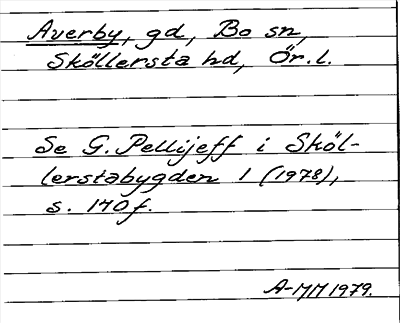 Averby, gd, Bo sn,
Sköllersta hd, Ör. l.
Se G. Pellijeff i Sköl-
lerstabygden 1 (1978),
s. 140 f.
A-MM 1979.